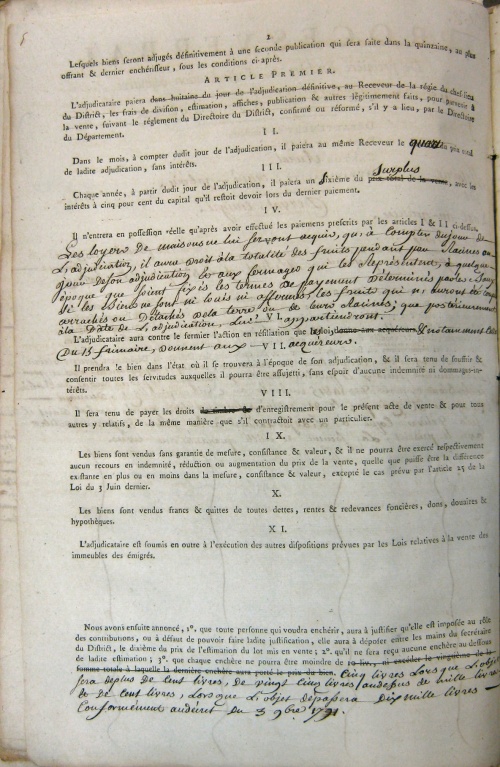 2
Lesquels biens seront adjugés définitivement à une seconde publication qui sera faite dans la quinzaine, au plus
offrant & dernier enchérisseur, sous les conditions ci-après.
ARTICLE PREMIER.
L'adjudicataire paiera dans huitaine du jour de l'adjudication définitive, au Receveur de la régie du chef lieu
du District, les frais de division, estimation, affiches, publication & autres légitimement faits, pour parvenir à
la vente, suivant le réglement du Directoire du District, confirmé ou réformé, s'il y a lieu, par le Directoire
du Département.
II.
Dans le mois, à compter dudit jour de l'adjudication, il paiera au même Receveur le quart du prix total
de ladite adjudication, sans intérêts.
III.
surplus
Chaque année, à partir dudit jour de l'adjudication, il paiera un sixième du prix total de la vente, avec les
intérêts à cinq pour cent du capital qu'il restoit devoir lors du dernier paiement.
IV.
Il n'entrera en possession réelle qu'après avoir effectué les paiemens prescrits par les articles I & II ci-dessus,
Les loyers de maisons ne lui seront acquis, qu'à compter du jour de
L'adjudication, il aura droit à la totalité des fruits pendant par Racines au
jour de son adjudication & aux fermages qui les Représentent, à quelque
époque que soient fixés les termes de payement déterminés par les
Si les Biens ne sont ni loués ni affermés, les fruits qui ne seront
arrachés ou Détachés de la terre ou de leurs Racines, que postérieurement
à la Date de L'adjudication, Lui appartiendront.
VI.
L'adjudicataire aura contre le fermier l'action en résiliation que les loix donne aux acquéreurs &
Du 15 frimaire, donnent aux acquéreurs.
VII.
Il prendra le bien dans l'état où il se trouvera à l'époque de son adjudication, & il sera tenu de souffrir &
consentir toutes les servitudes auxquelles il pourra être assujetti, sans espoir d'aucune indemnité ni dommages-in-
térêts.
VIII.
Il sera tenu de payer les droits de timbre & d'enregistrement pour le présent acte de vente & pour tous
autres y relatifs, de la même manière que s'il contractoit avec un particulier.
IX.
Les biens sont vendus sans garantie de mesure, consistance & valeur, & il ne pourra être exercé respectivement
aucun recours en indemnité, réduction ou augmentation du prix de la vente, quelle que puisse être la différence
existante en plus ou en moins dans la mesure, consistance & valeur, excepté le cas prévu par l'article 25 de la
Loi du 3 Juin dernier.
X.
Les biens sont vendus francs & quittes de toutes dettes, rentes & redevances foncières, dons, douaires &
hypothèques.
XI.
L'adjudicataire est soumis en outre à l'exécution des autres dispositions prévues par les Lois relatives à la vente des
immeubles des émigrés.
Nous avons ensuite annoncé, 1°. que toute personne qui voudra enchérir, aura à justifier qu'elle est imposée au rôle
des contributions, ou à défaut de pouvoir faire ladite justification, elle aura à déposer entre les mains du secrétaire
du District, le dixième du prix de l'estimation du lot mis en vente ; 2°. qu'il ne sera reçu aucune enchère au dessous
de ladite estimation ; 3°. que chaque enchère ne pourra être moindre de 10 liv., ni excéder le vingtième de la
somme totale à laquelle la dernière enchère aura porté le prix du bien. Cinq livres Lorsque L'objet
sera de plus de cent livres, de vingt cinq livres audessus de mille livres
& de cent livres, Lorsque L'objet dépassera Dix mille livres
Conformément audécret du 3 9bre 1791.